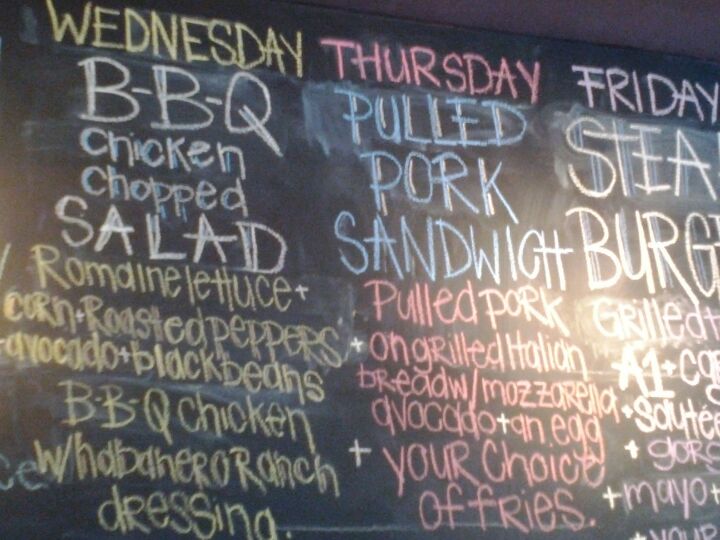 WEDNESDAY
B-B-Q
chicken
chopped
SALAD
Romaine lettuce +
corn + Roasted peppers
+ avocado + black beans
B-B-Q chicken
w/ habanero Ranch
dressing.
THURSDAY
PULLED
PORK
SANDWICH
Pulled pork
+ on grilled Italian
bread w/ mozzarella
avocado + an egg
+ YOUR Choice
of fries.
FRIDAY
STEA
BURG
Grilled
A1 +
+ sauté
+ gors
+ mayo +
+ your